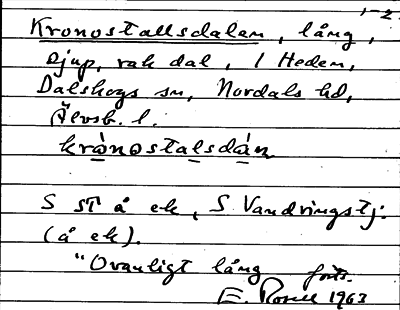 1-2
Kronostallsdalen, lång,
djup, rak dal, i Heden,
Dalskogs sn, Nordals hd,
Älvsb. l.
krònostalsdán
S st å ek, S Vandringstj.
(å ek).
"Ovanligt lång forts.
E. Rosell 1963